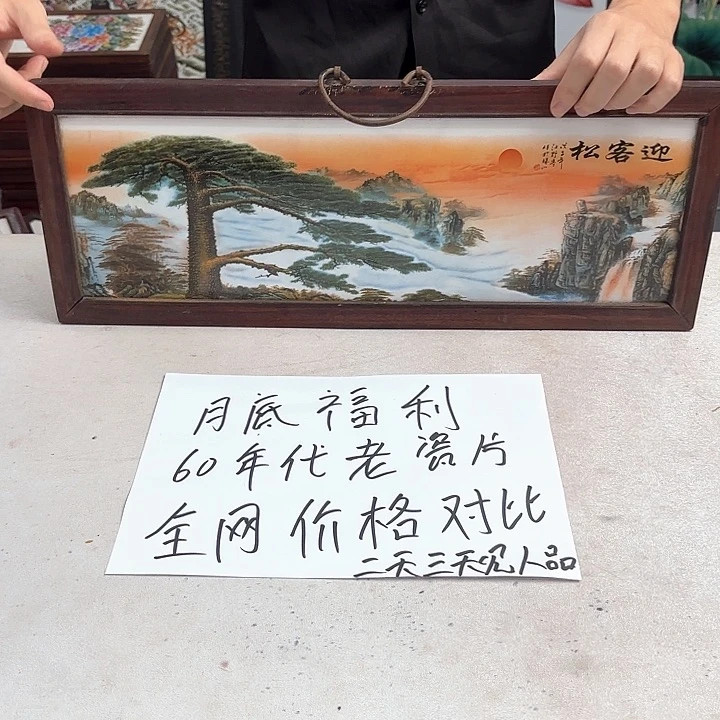 迎客松
月底福利
60年代老瓷片
全网价格对比
二天三天见人品